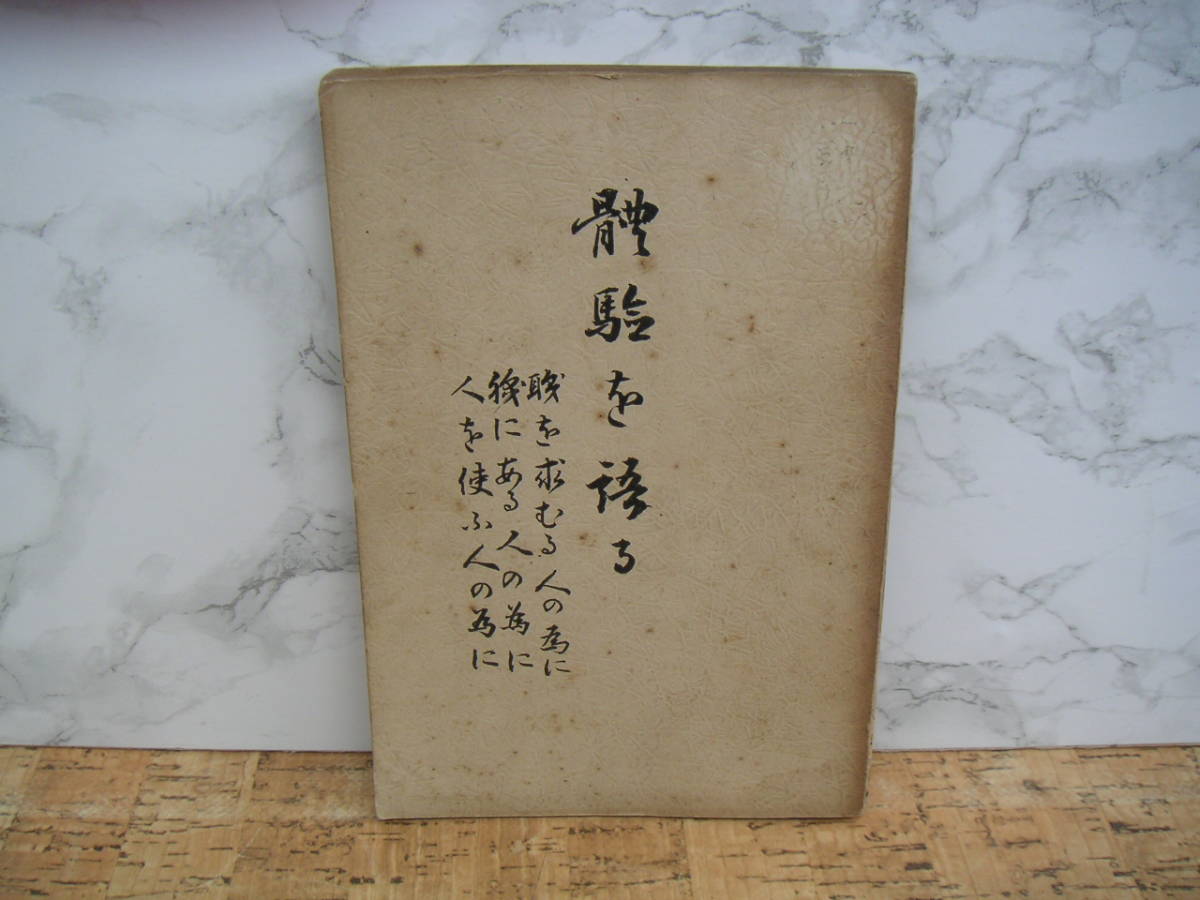 體驗を語る
職を求むる人の為に
職にある人の為に
人を使ふ人の為に